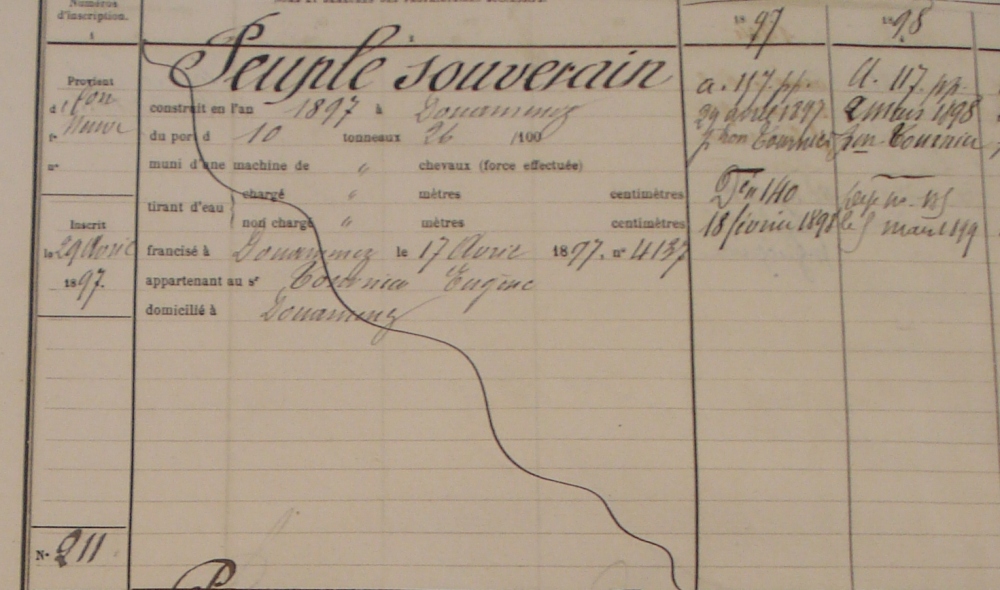 Numéros
d'inscription.
1
Provient
d
f°
n°
Inscrit
le 29 Avril
1897.
N° 211
2
Peuple souverain
construit en l'an 1897 à Douarnenez
du port d 10 tonneaux 26 /100
muni d'une machine de " chevaux (force effectuée)
tirant d'eau
chargé mètres centimètres
non chargé " mètres centimètres
francisé à Douarnenez le 17 Avril 1897, n° 4137
appartenant au sr Eugène
domicilié à Douarnenez
1897
a. 157. pp.
29 avril 1897.
pon
Dém 140
18 février 1898
1898
A. 117. pp.
2 mars 1898
pon